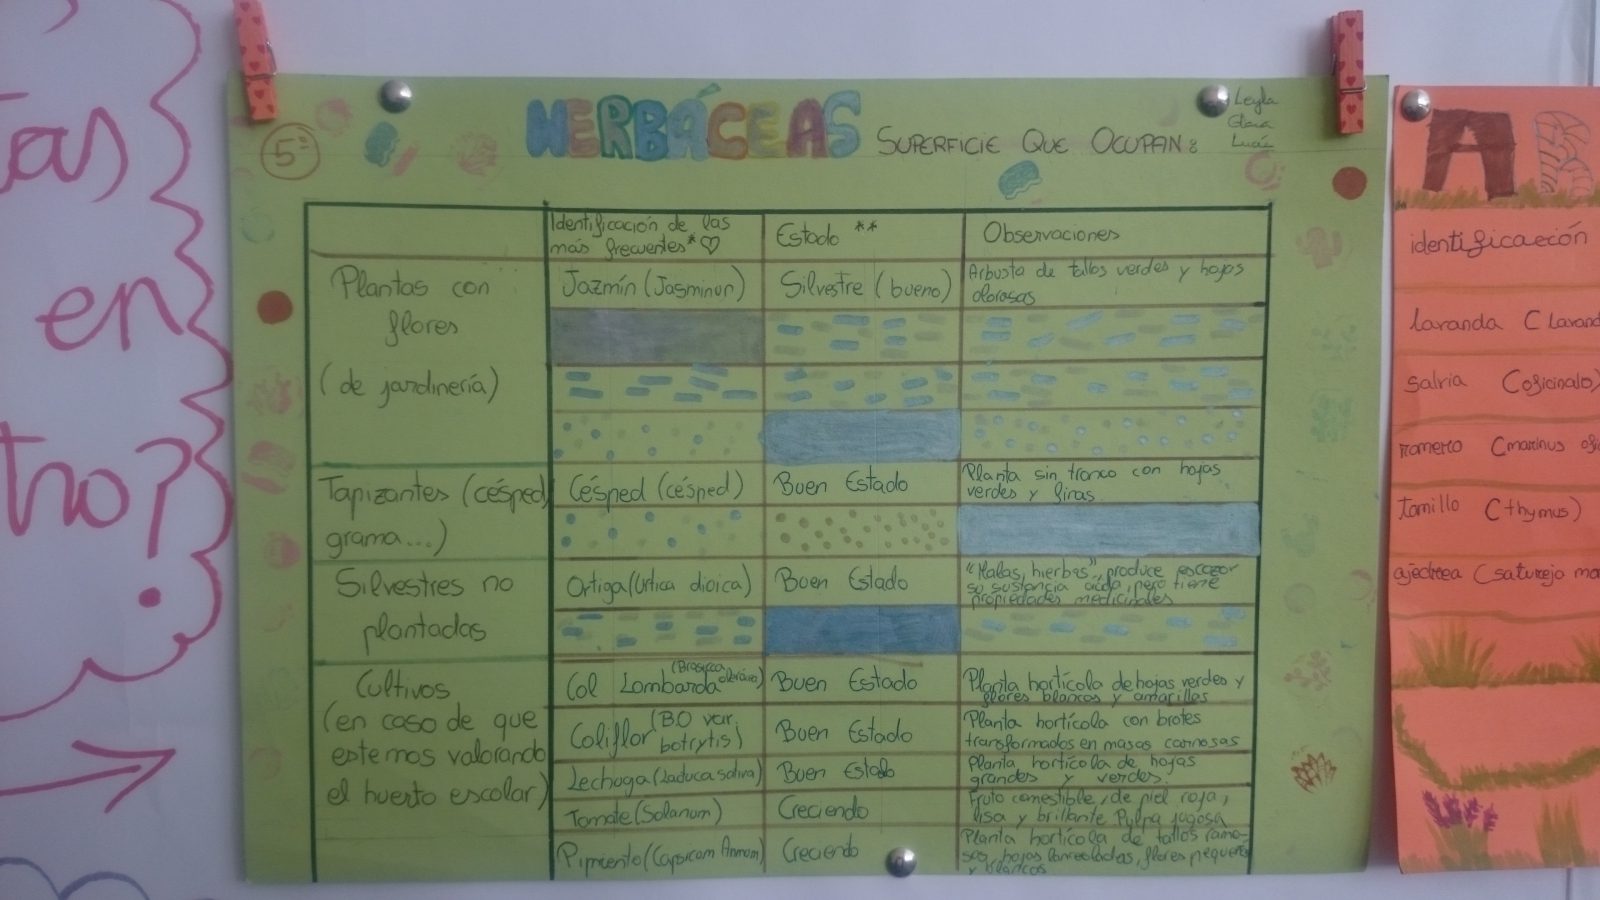 tas
en
tro?
5º
HERBÁCEAS SUPERFICIE QUE OCUPAN:
Leyla
Clara
Lucía
Identificación de las
más frecuentes*♡
Estado **
Observaciones
Plantas con
flores
(de jardinería)
Jazmín (Jasminun)
Silvestre (bueno)
Arbusta de tallos verdes y hojas
olorosas
Tapizantes (césped,
grama...)
Césped (césped)
Buen Estado
Planta sin tronco con hojas
verdes y finas.
Silvestres no
plantadas
Ortiga (Urtica dioica)
Buen Estado
"Malas hierbas", produce escozor
su sustancia ácida, pero tiene
propiedades medicinales
Cultivos
(en caso de que
estemos valorando
el huerto escolar)
Col Lombarda (Brasicca oleráceo)
Buen Estado
Planta hortícola de hojas verdes y
flores blancos y amarillas
Coliflor (B.O var.
botrytis)
Buen Estado
Planta hortícola con brotes
transformados en masas carnosas
Lechuga (Laduca sativa)
Buen Estado
Planta hortícola de hojas
grandes y verdes.
Tomate (Solanum)
Creciendo
Fruto comestible, de piel roja,
lisa y brillante. Pulpa jugosa
Pimiento (Capsicom Annom)
Creciendo
Planta hortícola de tallos ramo-
sos, hojas lanceoladas, flores pequeñas
y blancos
A
identificaeción
lavanda (Lavand
salvia (oficinalo)
romero (marinus ofi
tomillo (thymus)
ajedrea (saturejo mo